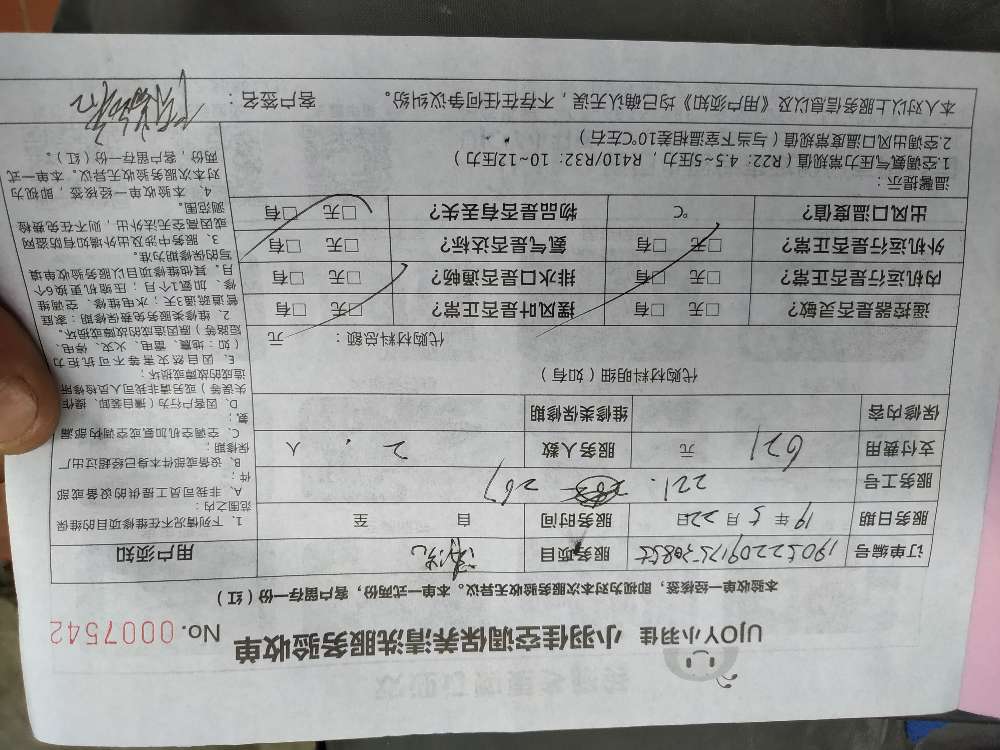 UJOY小羽佳 小羽佳空调保养清洗服务验收单 No. 0007542
本验收单一经核签,即为视为对本次服务验收无异议。本单一式两份,客户留存一份(红)
订单编号 服务项目 清洗 用户须知
服务日期 19年5月22日 服务时间 自 至
服务工号 221. 267
支付费用 621 元 服务人数 2. 人
保修内容 维修类保修期
代购材料明细(如有)
代购材料总额: 元
遥控器是否灵敏? □无 □有 摆风叶是否正常? □无 □有
内机运行是否正常? □无 □有 排水口是否通畅? □无 □有
外机运行是否正常? □无 □有 氨气是否达标? □无 □有
出风口温度值? ℃ 物品是否有丢失? □无 □有
1. 下列情况不在维修项目的维保
范围之内:
A、非我司员工提供的设备或部
件;
B、设备或部件本身已经超过出厂
保修期;
C、空调空机加氨或空调内部漏
氨;
D、因客户行为(擅自装卸、操作
失误等)或另请非我司人员检修所
造成的故障或损坏;
E、因自然灾害等不可抗拒力
(如:地震、雷电、火灾、停电、
短路等)原因造成的故障或损坏。
2、维修类服务免费保修期:家庭
管道疏通3天;水电维修、空调维
修、加氨1个月;压缩机更换6个
月。其他维修项目以服务验收单填
写的保修期为准。
3、服务中涉及出外墙如有防盗网
或因高空无法外出,则不在免费检
测范围。
4、本验收单一经核签,即为视
对本次服务验收无异议。本单一式
两份,客户留存一份(红)。
温馨提示:
1.空调氨气压力常规值(R22:4.5~5压力,R410/R32:10~12压力)
2.空调出风口温度常规值(与当当室温相差10℃左右)
本人对以上服务信息以及《用户须知》均已确认无误,不存在任何争议纠纷。 客户签名: